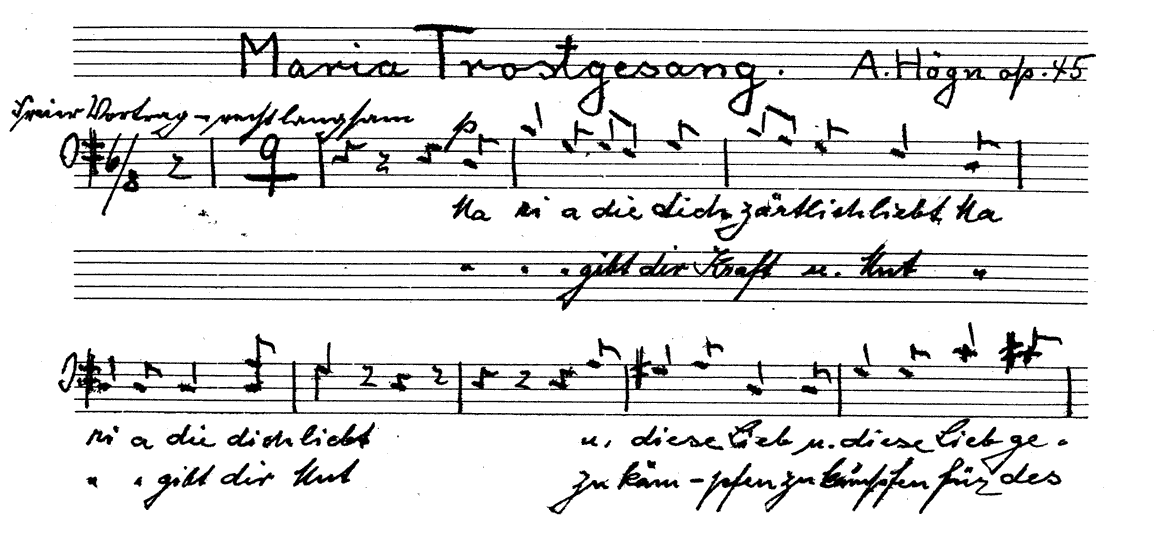 Maria Trostgesang. A. Högn op. 45
Freier Vortrag – recht langsam
6/8 9 p
Ma ri a die dich zärtlich liebt Ma
" " " gibt dir Kraft u. Mut "
ri a die dich liebt u. diese Lieb u. diese Lieb ge -
" " gibt dir Mut zu käm - pfen zu kämpfen für des